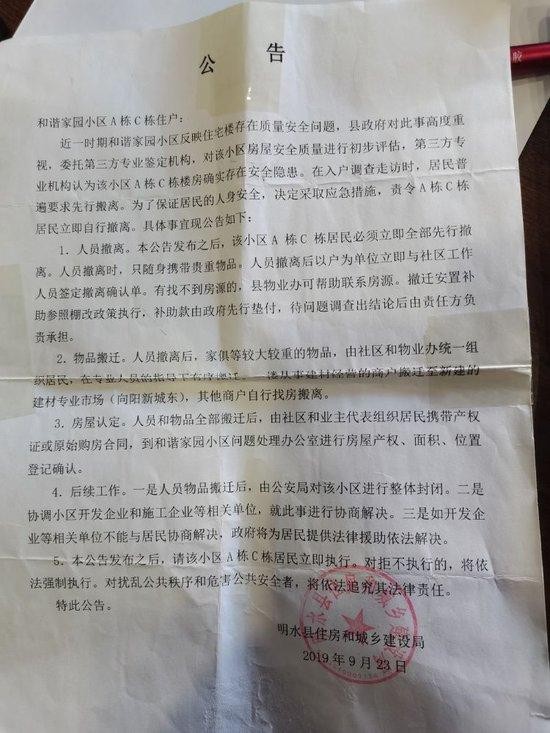 公 告
和谐家园小区 A 栋 C 栋住户：
近一时期和谐家园小区反映住宅楼存在质量安全问题，县政府对此事高度重
视，委托第三方专业鉴定机构，对该小区房屋安全质量进行初步评估，第三方专
业机构认为该小区 A 栋 C 栋楼房确实存在安全隐患。在入户调查走访时，居民普
遍要求先行搬离。为了保证居民的人身安全，决定采取应急措施，责令 A 栋 C 栋
居民立即自行撤离。具体事宜现公告如下：
1．人员撤离。本公告发布之后，该小区 A 栋 C 栋居民必须立即全部先行撤
离。人员撤离时，只随身携带贵重物品。人员撤离后以户为单位立即与社区工作
人员签定撤离确认单。有找不到房源的，县物业办可帮助联系房源。撤迁安置补
助参照棚改政策执行，补助款由政府先行垫付，待问题调查出结论后由责任方负
责承担。
2．物品搬迁。人员撤离后，家俱等较大较重的物品，由社区和物业办统一组
织居民，在专业人员的指导下有序搬迁。一楼从事建材经营的商户搬迁至新建的
建材专业市场（向阳新城东），其他商户自行找房搬离。
3．房屋认定。人员和物品全部搬迁后，由社区和业主代表组织居民携带产权
证或原始购房合同，到和谐家园小区问题处理办公室进行房屋产权、面积、位置
登记确认。
4．后续工作。一是人员物品搬迁后，由公安局对该小区进行整体封闭。二是
协调小区开发企业和施工企业等相关单位，就此事进行协商解决。三是如开发企
业等相关单位不能与居民协商解决，政府将为居民提供法律援助依法解决。
5．本公告发布之后，请该小区 A 栋 C 栋居民立即执行。对拒不执行的，将依
法强制执行。对扰乱公共秩序和危害公共安全者，将依法追究其法律责任。
特此公告。
明水县住房和城乡建设局
2019 年 9 月 23 日